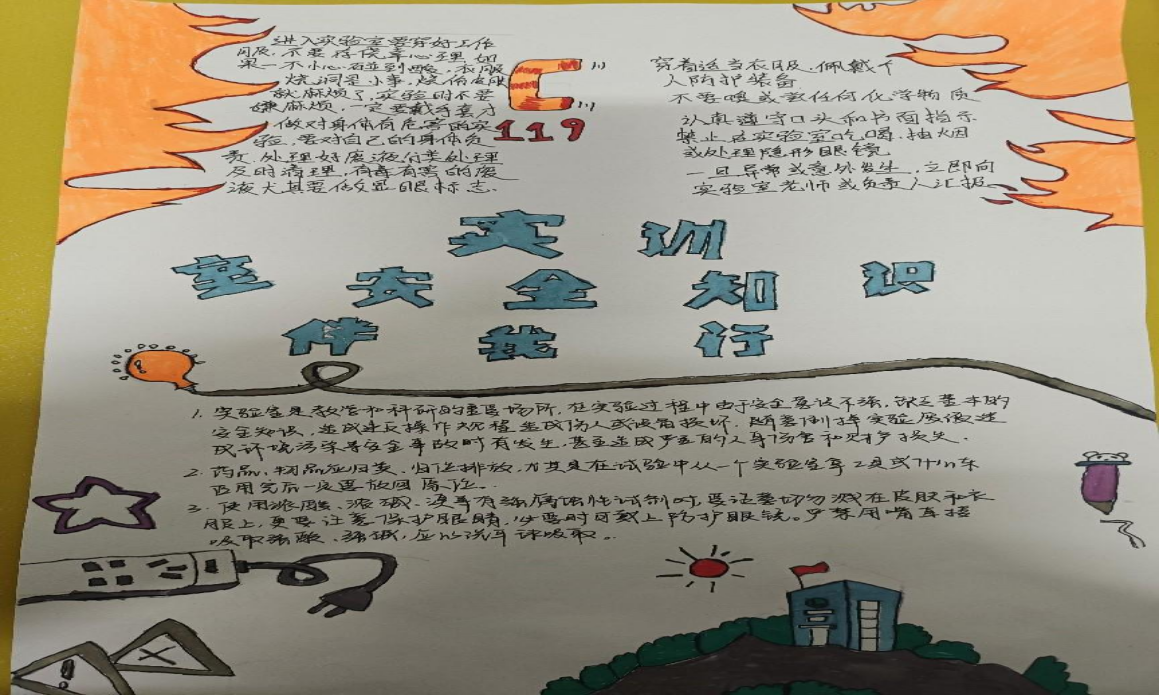 进入实验室要穿好工作
服，不要存侥幸心理，如
果一不小心碰到酸，衣服
烧洞是小事，烧伤皮肤
就麻烦了，实验时不要
嫌麻烦，一定要戴手套才
做对身体有危害的实
验，要对自己的身体负
责，处理好废液分类处理
及时清理，有毒有害的废
液尤其要做显眼标志.
119
穿着适当衣服，佩戴个
人防护装备
不要嗅或尝任何化学物质
认真遵守口头和书面指示
禁止在实验室吃喝，抽烟
或处理隐形眼镜
一旦异常或意外发生，立即向
实验室老师或负责人汇报。
实训
室安全知识
伴我行
1. 实验室是教学和科研的重要场所，在实验过程中由于安全意识不强，缺乏基本的
安全知识，造成违反操作规程造成伤人或设备损坏，随意倒掉实验废液造
成环境污染等安全事故时有发生，甚至造成严重的人身伤害和财产损失.
2. 药品，物品应归类、归还排放，尤其是在试验中从一个实验室拿工具或什么东
西用完后一定要放回原位。
3. 使用浓酸、浓碱、溴等有强腐蚀性试剂时，要注意切勿溅在皮肤和衣
服上，更要注意保护眼睛，必要时可戴上防护眼镜。严禁用嘴直接
吸取强酸、强碱，应以洗耳球吸取。